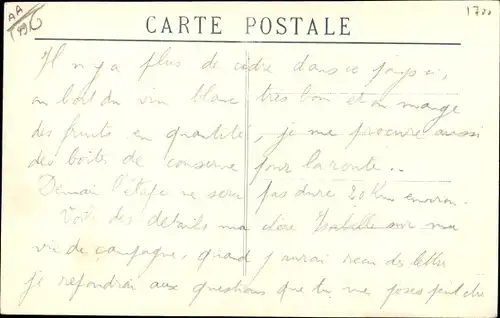 AA
1700
CARTE POSTALE
Il n y a plus de cidre dans ce pays ci,
on boit du vin blanc très bon et on mange
des fruits en quantité, je me procure aussi
des boites de conserve pour la route..
Demain l'étape ne sera pas dure 20 Km environ.
Voilà des détails ma chère Isabelle sur ma
vie de campagne, quand j aurai reçu des lettres
je répondrai aux questions que tu me poses peut être